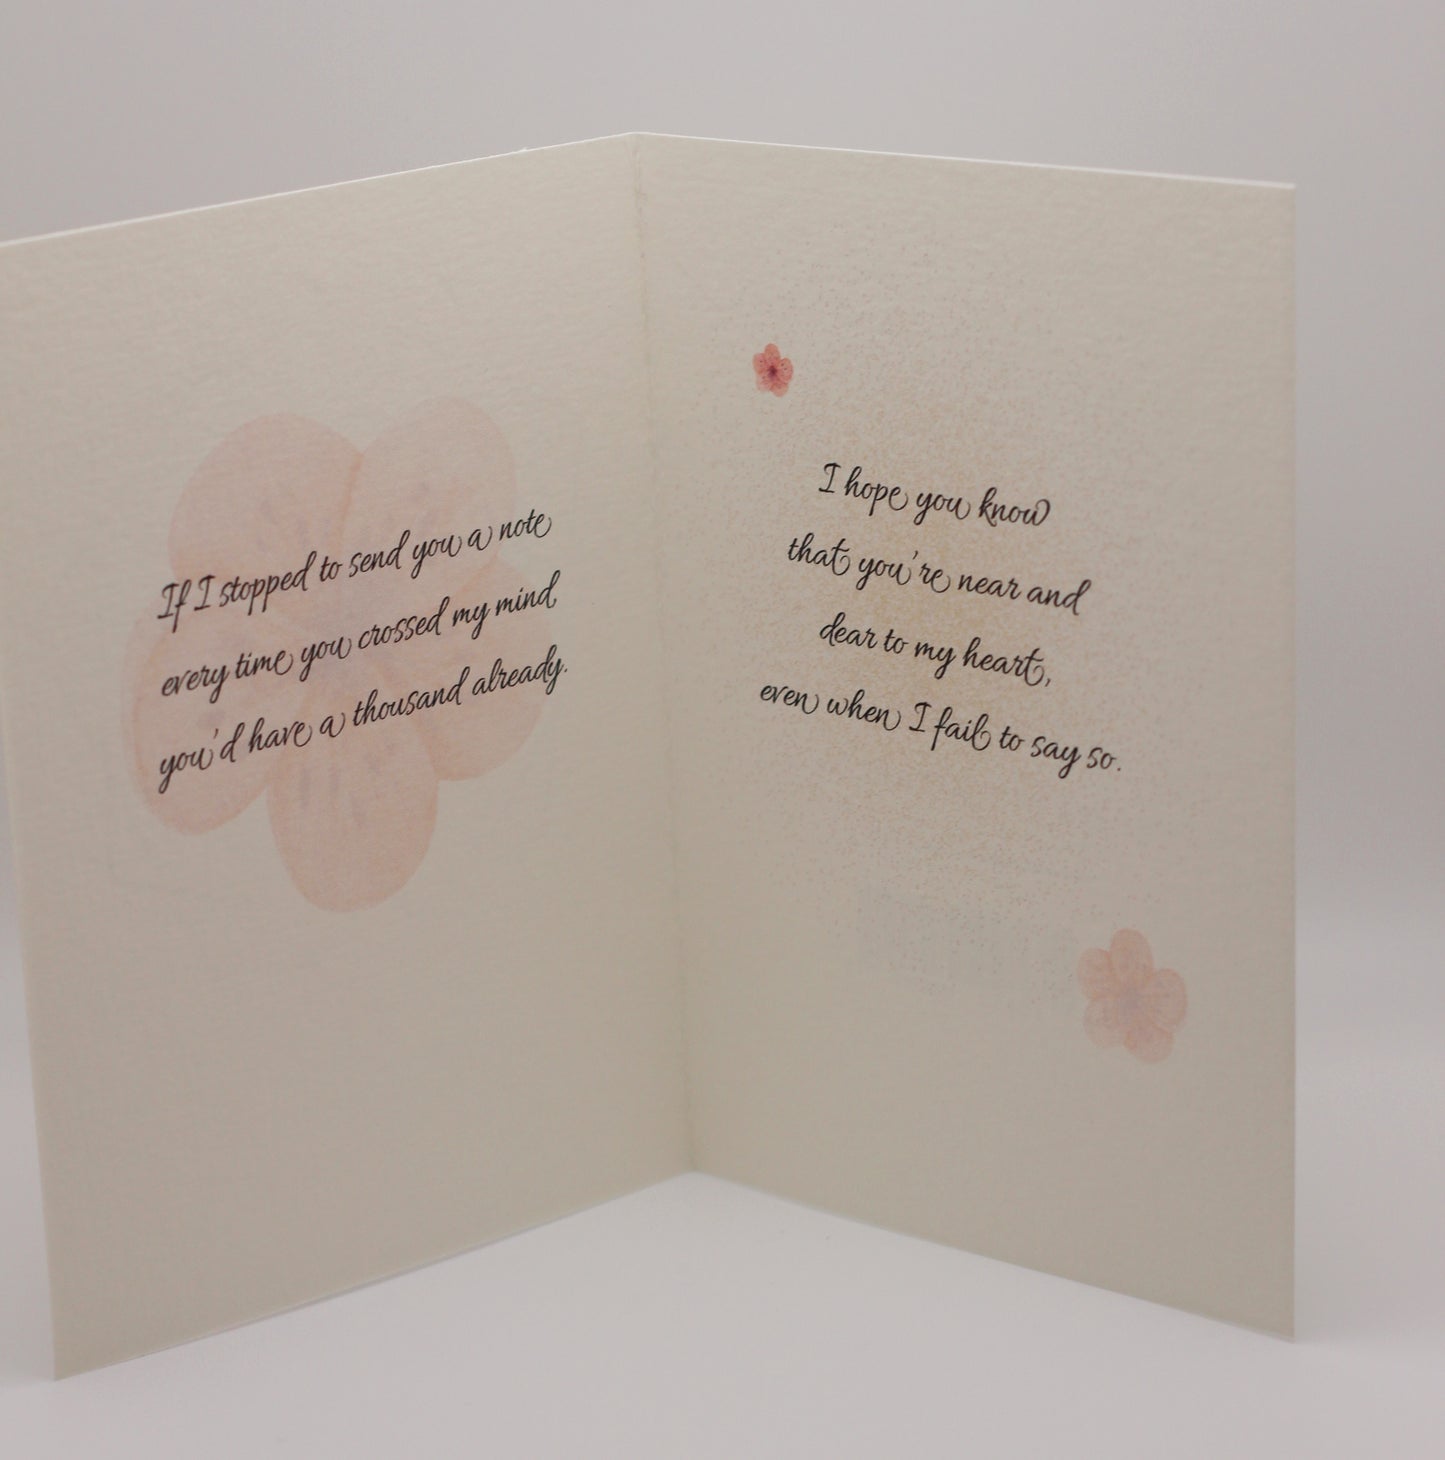 If I stopped to send you a note
every time you crossed my mind
you'd have a thousand already.
I hope you know
that you're near and
dear to my heart,
even when I fail to say so.